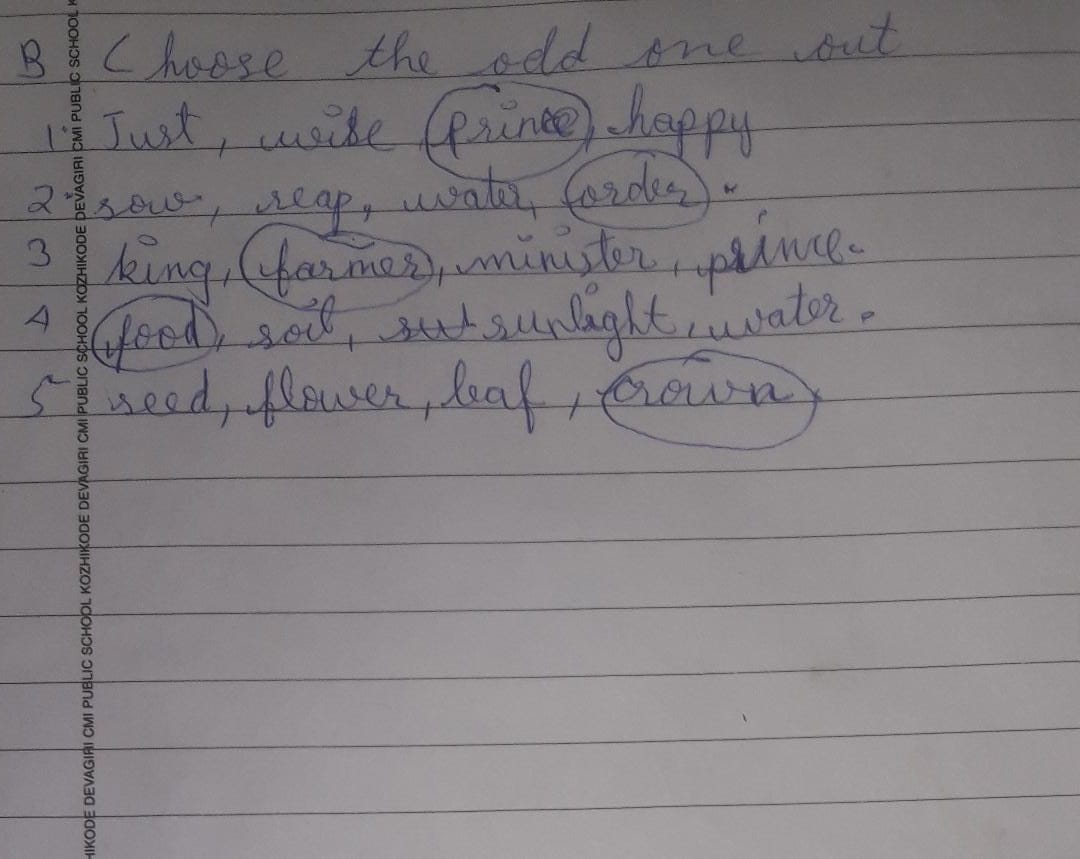 B Choose the odd one out
1. Just, wise, prince, happy
2. sow, reap, water, order.
3 king, farmer, minister, prince.
4 food, soil, sunlight, water.
5 seed, flower, leaf, crown
KOZHIKODE DEVAGIRI CMI PUBLIC SCHOOL KOZHIKODE DEVAGIRI CMI PUBLIC SCHOOL KOZHIKODE DEVAGIRI CMI PUBLIC SCHOOL